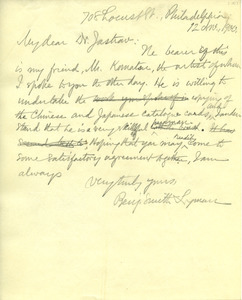 708 Locust St., Philadelphia,
12 Nov., 1900.
My dear Dr. Jastrow:
The bearer of this
is my friend, Mr. Komatar, the artist of whom
I spoke to you the other day. He is willing to
undertake the copying of
the Chinese and Japanese catalogue cards, and I under-
stand that he is a very skilful penman.
Hoping that you may readily come to
some satisfactory agreement together, I am
always
Very truly yours,
Benj. Smith Lyman.